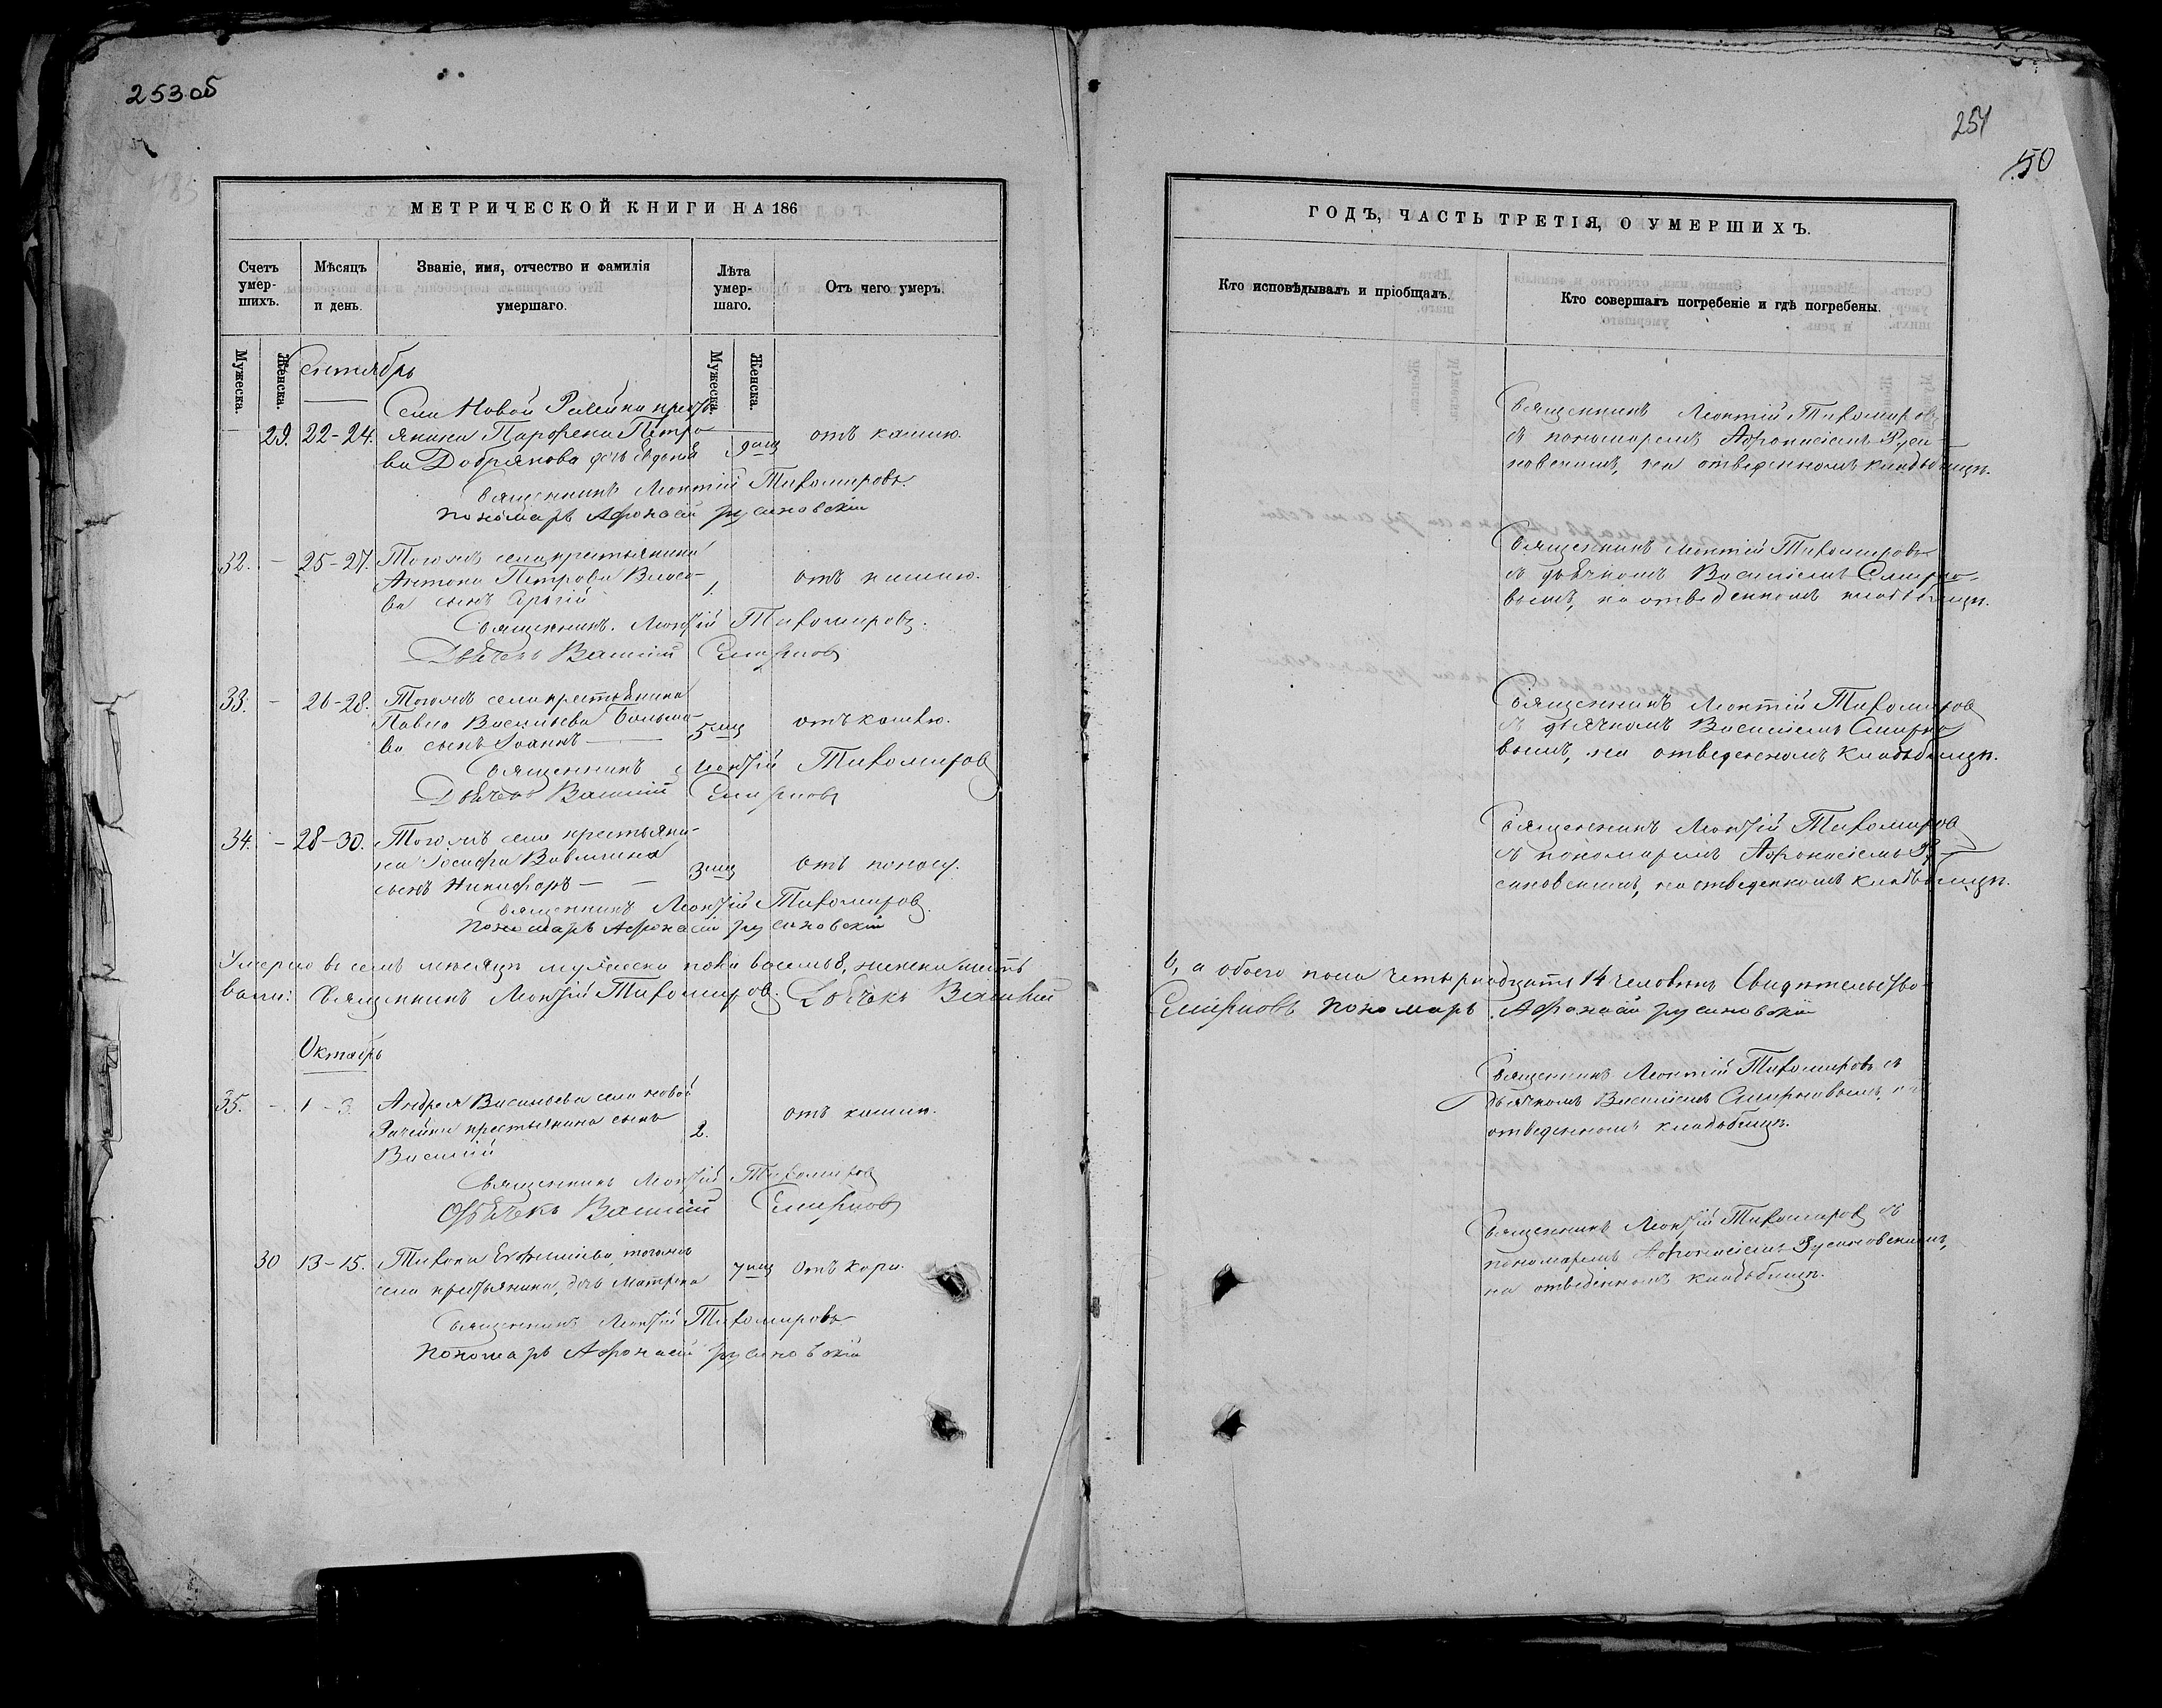 253 об
МЕТРИЧЕСКОЙ КНИГИ НА 186
Счетъ умер-шихъ.
Мѣсяцъ и день.
Званіе, имя, отчество и фамилія умершаго.
Лѣта умер-шаго.
Отъ чего умеръ.
Мужеска.
Женска.
Мужеска.
Женска.
Сентябрь
Села Новой Рачейки кресть
29. 22-24. янина Парфена Петро
ва Добрякова дочь 9 мц отъ кашлю.
Священникъ Леонтій Тихомировъ.
Пономарь Афонасій Русановскій
32. - 25-27. Тогожъ села крестьянина
Антона Петрова Власо-
ва сынъ Сергій 1. отъ кашлю.
Священникъ. Леонтій Тихомировъ.
Дьячекъ Василій Смирновъ
33. - 26-28. Тогожъ села крестьянина
Павла Васильева
ва сынъ Іоаннъ 5 мц отъ кашлю.
Священникъ Леонтій Тихомировъ
Дьячекъ Василій Смирновъ
34. - 28-30. Тогожъ села крестьяни-
на Іосифа Вавилина
сынъ Никифоръ 3 мц отъ поносу.
Священникъ Леонтій Тихомировъ.
Пономарь Афонасій Русановскій
Умерло въ семъ мѣсяцѣ мужеска пола восемь 8, женска шесть
вали: Священникъ Леонтій Тихомировъ. Дьячекъ Василій
Октябрь
35. - 1-3. Андрея Васильева села Новой
Рачейки крестьянина сынъ 2. отъ кашлю.
Василій
Священникъ Леонтій Тихомировъ
Дьячекъ Василій Смирновъ
30 13-15. Тихона Евфиміева, тогожъ
села крестьянина, дочь Матрена 7 мц Отъ кори.
Священникъ Леонтій Тихомировъ
Пономарь Афонасій Русановскій
254
50
ГОДЪ, ЧАСТЬ ТРЕТІЯ, О УМЕРШИХЪ.
Кто исповѣдывалъ и пріобщалъ.
Кто совершалъ погребеніе и гдѣ погребены.
Священникъ Леонтій Тихомировъ
съ пономаремъ Афонасіемъ Руса-
новскимъ, на отведенномъ кладбищѣ.
Священникъ Леонтій Тихомировъ
съ дьячкомъ Василіемъ Смирно-
вымъ, на отведенномъ кладбищѣ.
Священникъ Леонтій Тихомировъ
съ дьячкомъ Василіемъ Смирно
вымъ, на отведенномъ кладбищѣ.
Священникъ Леонтій Тихомировъ
съ пономаремъ Афонасіемъ Ру-
сановскимъ, на отведенномъ кладбищѣ.
6, а обоего пола четырнадцать 14 человѣкъ Свидѣтельство-
Смирновъ Пономарь Афонасій Русановскій
Священникъ Леонтій Тихомировъ съ
дьячкомъ Василіемъ Смирновымъ, на
отведенномъ кладбищѣ.
Священникъ Леонтій Тихомировъ съ
пономаремъ Афонасіемъ Русановскимъ,
на отведенномъ кладбищѣ.